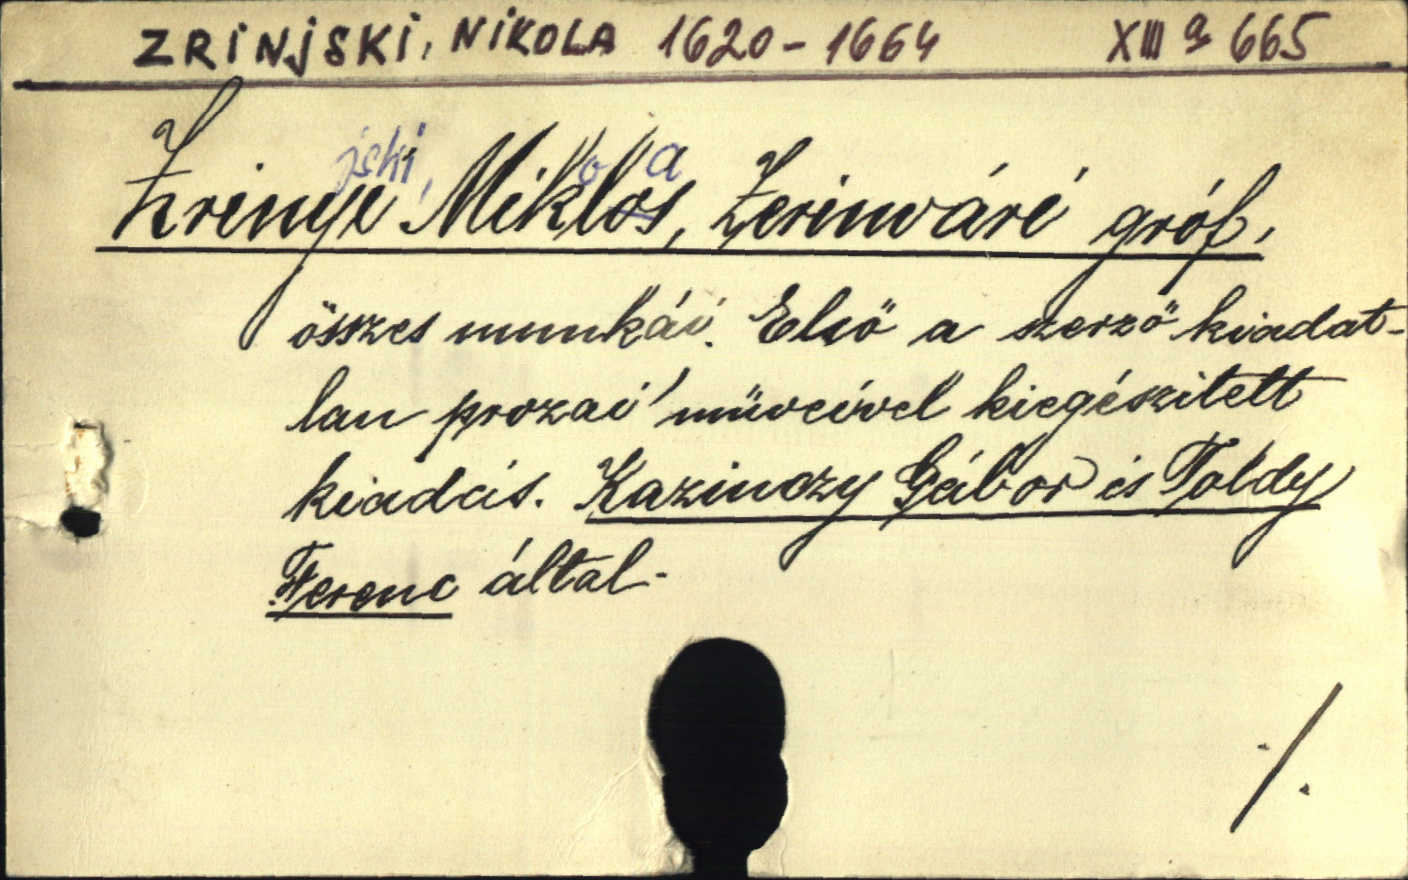 ZRINJSKI, NIKOLA 1620-1664 XIII 665
jski, o a
Zrinyi Miklos, Zerinvári gróf,
összes munkái. Első a szerző kiadat-
lan prozai műveivel kiegészitett
kiadás. Kazinczy Gábor és Toldy
Ferenc által.
./.